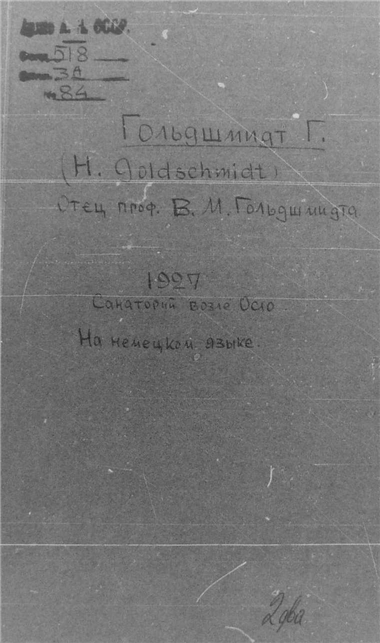 Архив А. Н. СССР.
518
3д
№ 84
Гольдшмидт Г.
(H. Goldschmidt)
Отец проф. В. М. Гольдшмидта
1927
Санаторий возле Осло
На немецком языке.
2 два